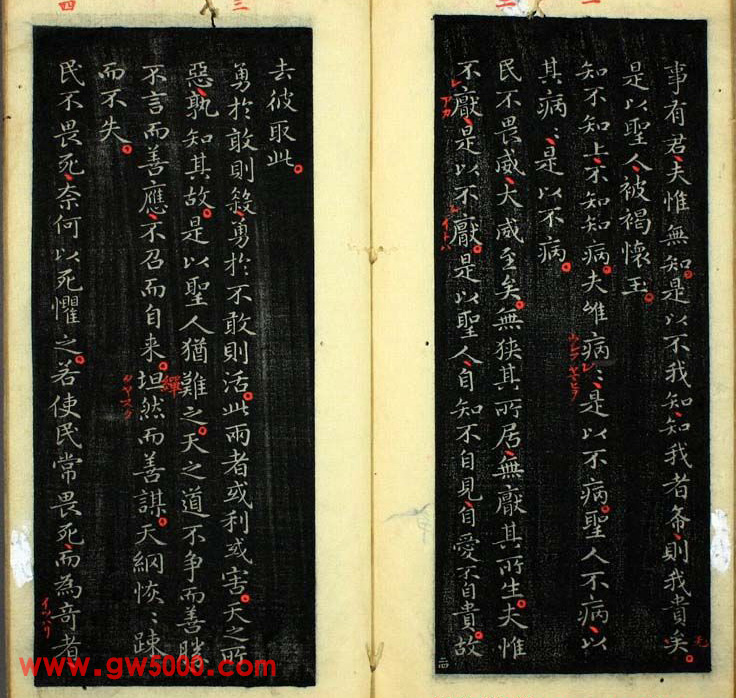 事有君夫惟無知是以不我知知我者希則我貴矣
是以聖人被褐懷玉
知不知上不知知病夫唯病〻是以不病聖人不病以
其病〻是以不病
民不畏威大威至矣無狹其所居無厭其所生夫惟
不厭是以不厭是以聖人自知不自見自愛不自貴故
去彼取此
勇於敢則殺勇於不敢則活此兩者或利或害天之所
惡孰知其故是以聖人猶難之天之道不争而善勝
不言而善應不召而自来坦然而善謀天網恢〻踈
而不失
民不畏死奈何以死懼之若使民常畏死而為奇者
繟
四
三
二
一
イツハリ
www.gw5000.com